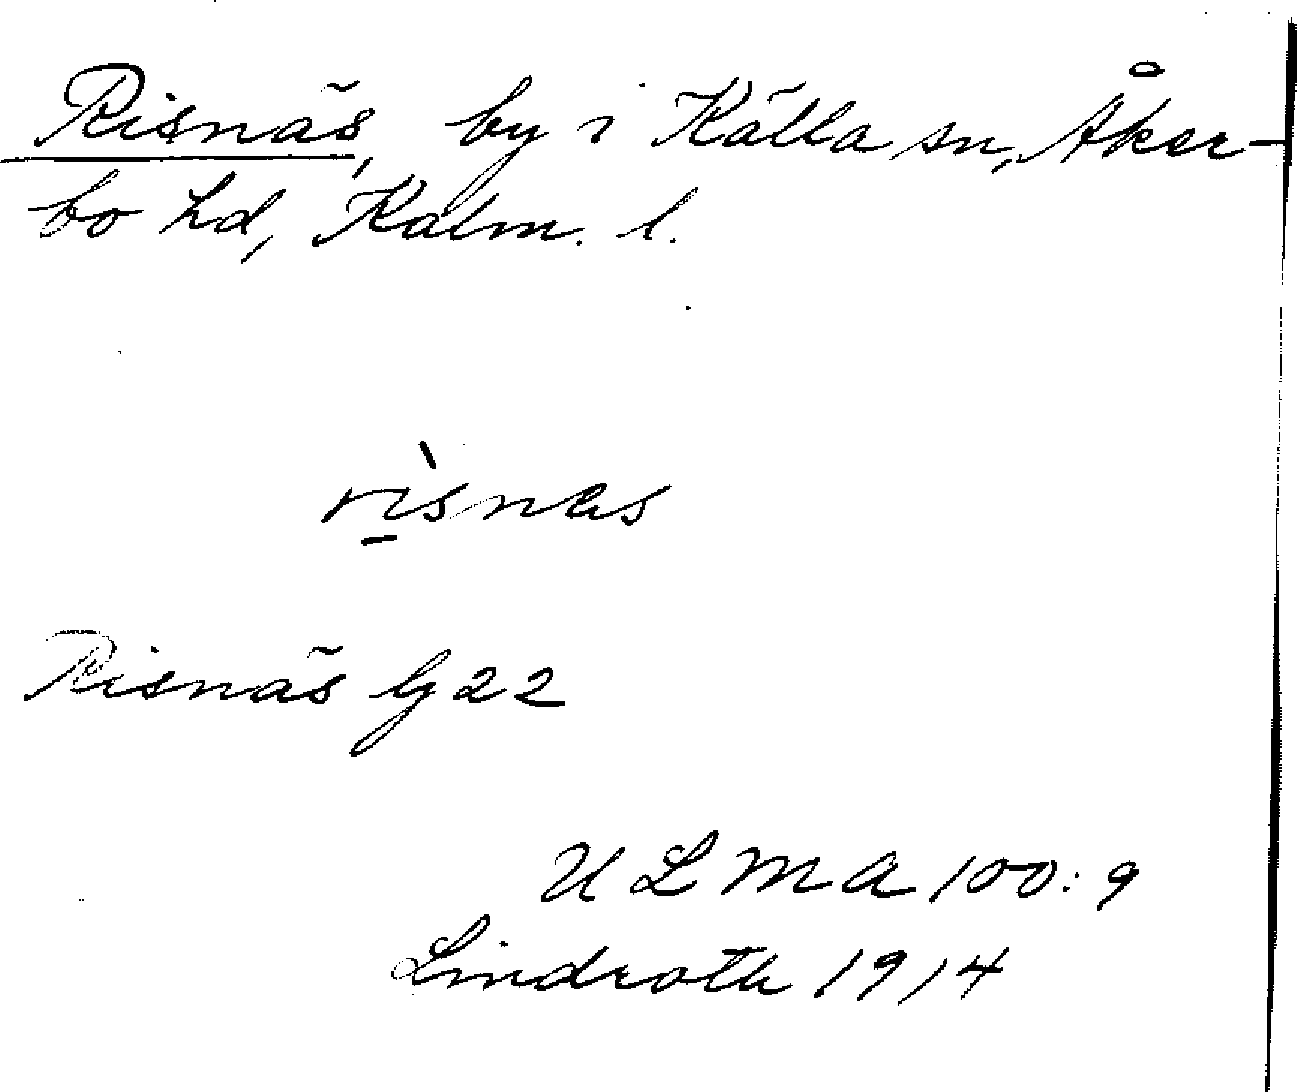 Risnäs, by i Källa sn, Åker-
bo hd, Kalm. l.
rìsnas
Risnäs G 22
ULMA 100:9
Lindroth 1914